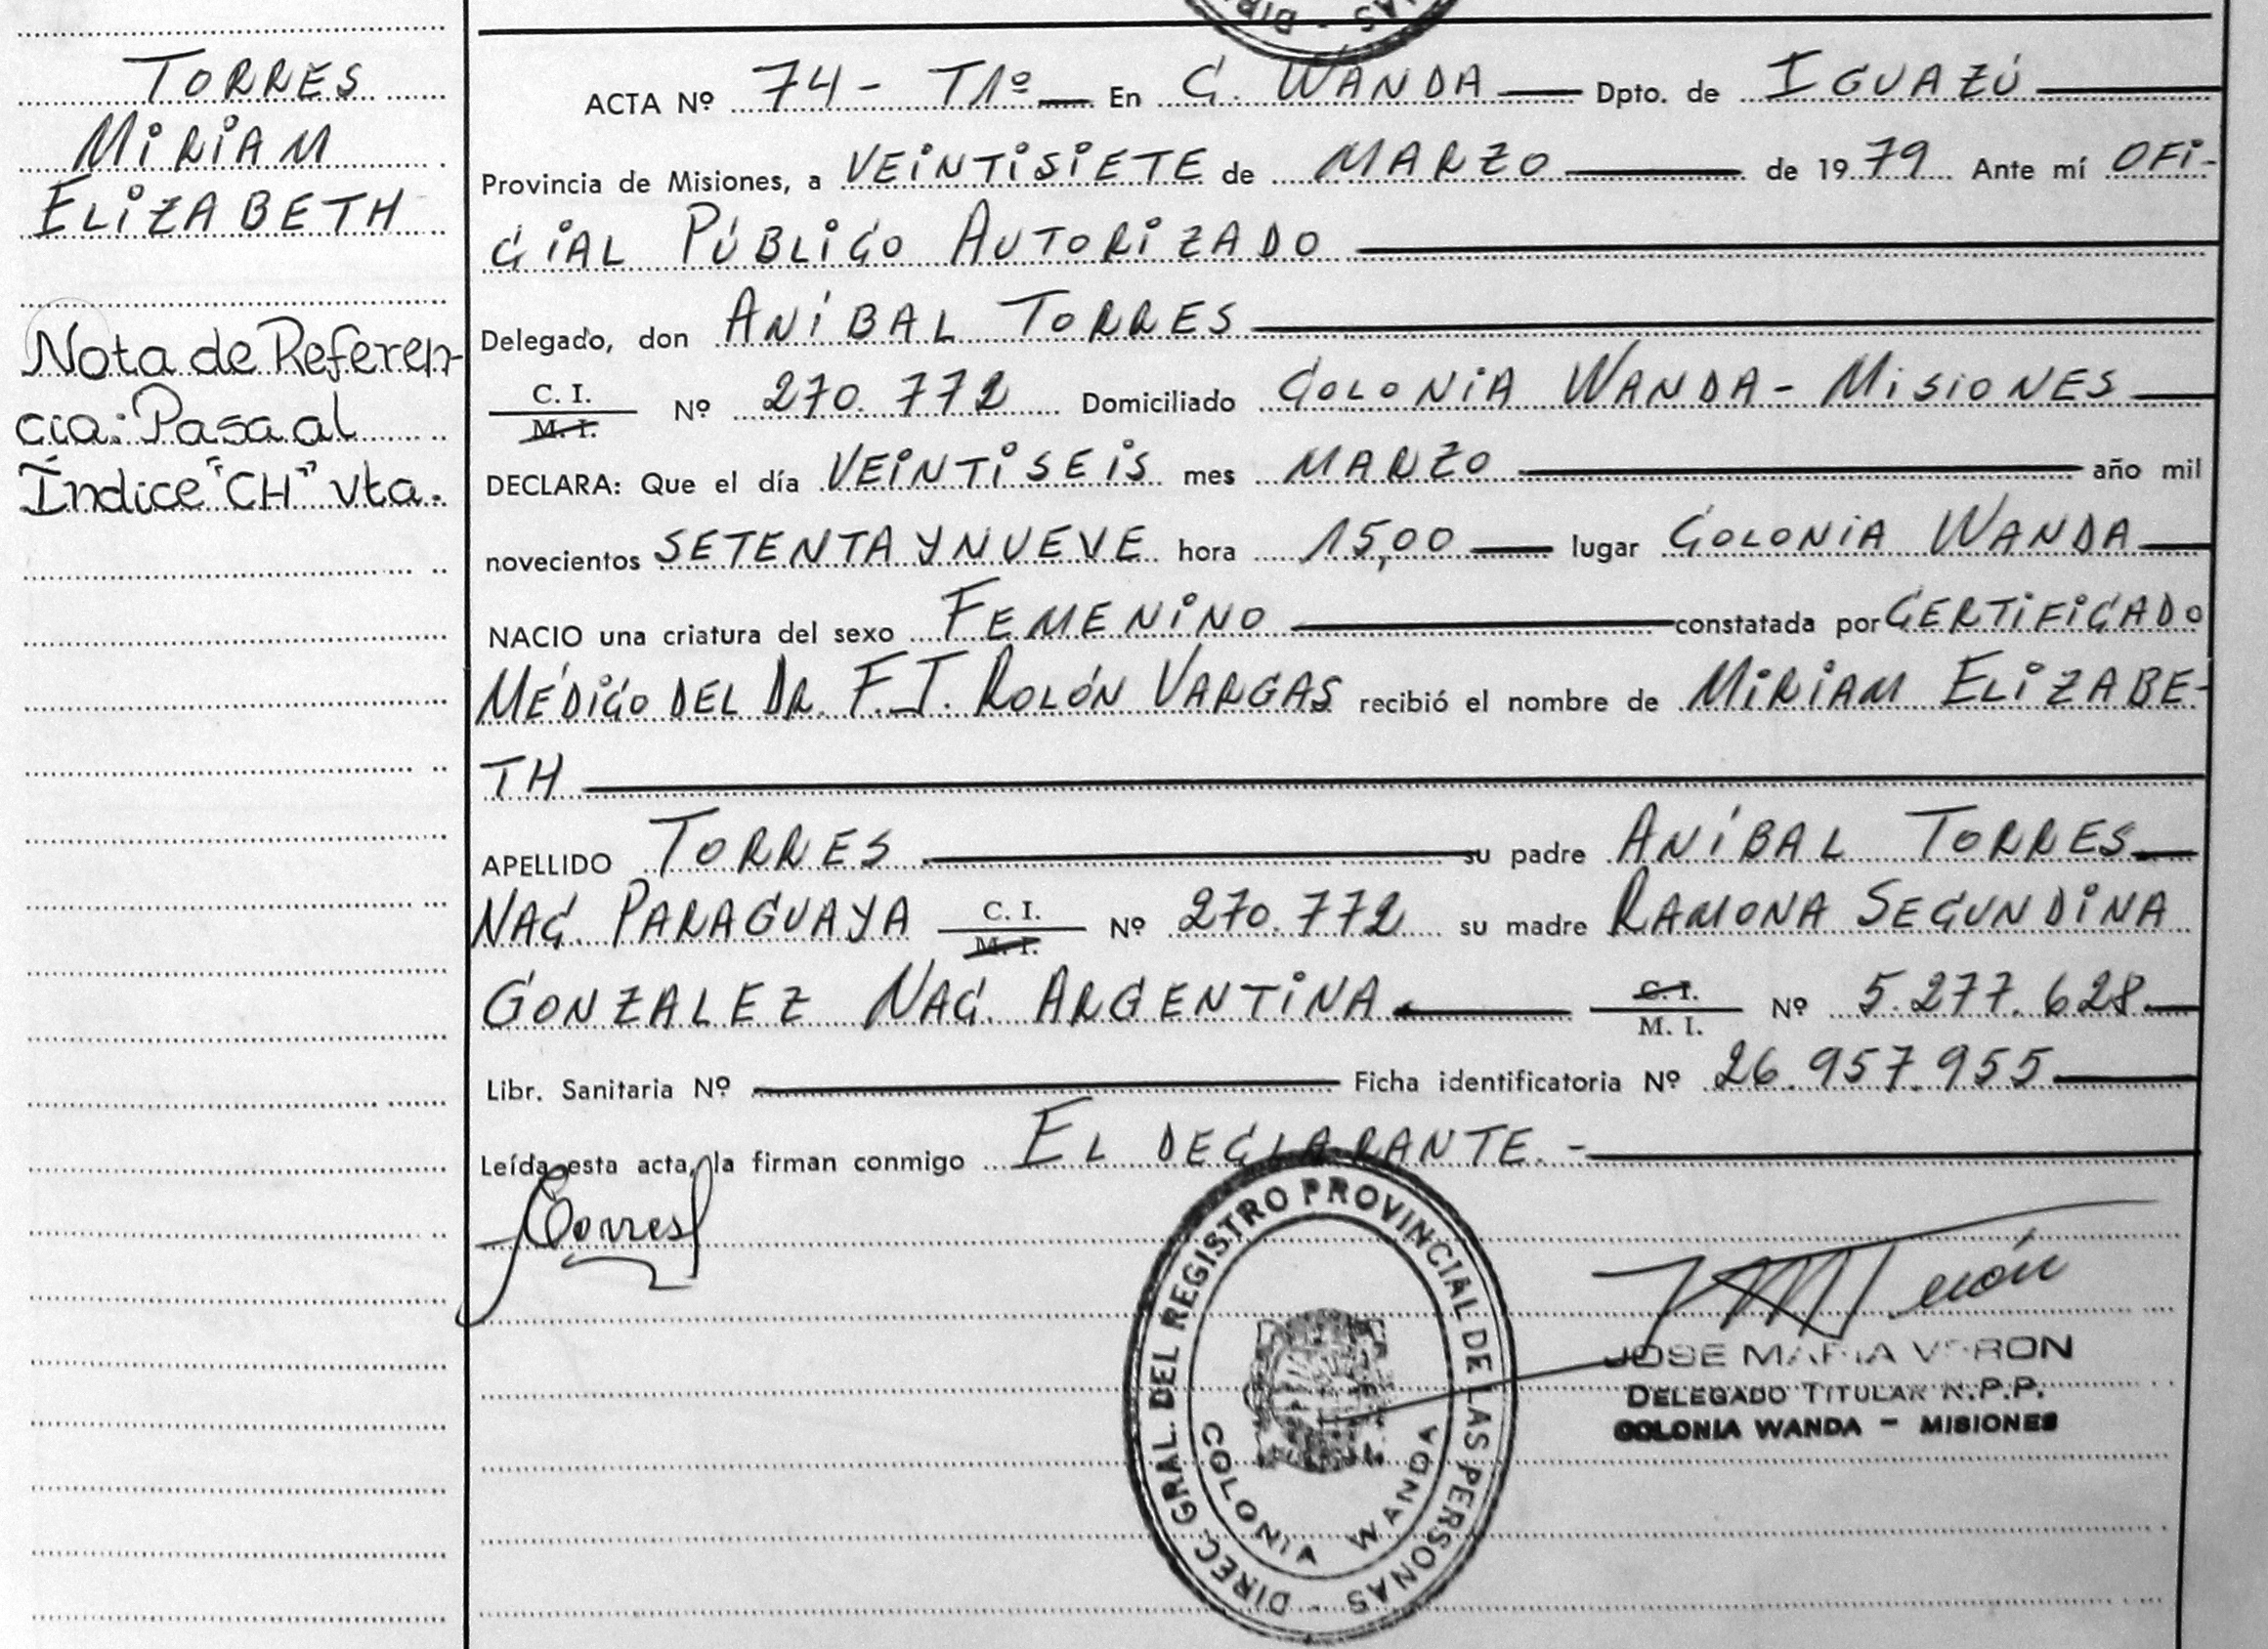 TORRES
MIRIAM
ELIZABETH
Nota de Referen-
cia: Pasa al
Índice "CH" vta.
ACTA Nº 74 - T1º En C. WANDA Dpto. de IGUAZÚ
Provincia de Misiones, a VEINTISIETE de MARZO de 1979 Ante mí OFI-
CIAL PÚBLICO AUTORIZADO
Delegado, don ANÍBAL TORRES
C. I.
M. I. Nº 270.772 Domiciliado COLONIA WANDA - MISIONES
DECLARA: Que el día VEINTISEIS mes MARZO año mil
novecientos SETENTA Y NUEVE hora 15,00 lugar COLONIA WANDA
NACIO una criatura del sexo FEMENINO constatada por CERTIFICADO
MÉDICO DEL DR. F. J. ROLÓN VARGAS recibió el nombre de MIRIAM ELIZABE-
TH
APELLIDO TORRES su padre ANÍBAL TORRES
NAC. PARAGUAYA C. I. M. I. Nº 270.772 su madre RAMONA SEGUNDINA
GONZALEZ NAC. ARGENTINA C. I. M. I. Nº 5.277.628
Libr. Sanitaria Nº Ficha identificatoria Nº 26.957.955
Leída esta acta, la firman conmigo EL DECLARANTE.-
Torres
DIREC. GRAL. DEL REGISTRO PROVINCIAL DE LAS PERSONAS -
COLONIA WANDA
JOSE MARIA VERON
DELEGADO TITULAR N.P.P.
COLONIA WANDA - MISIONES